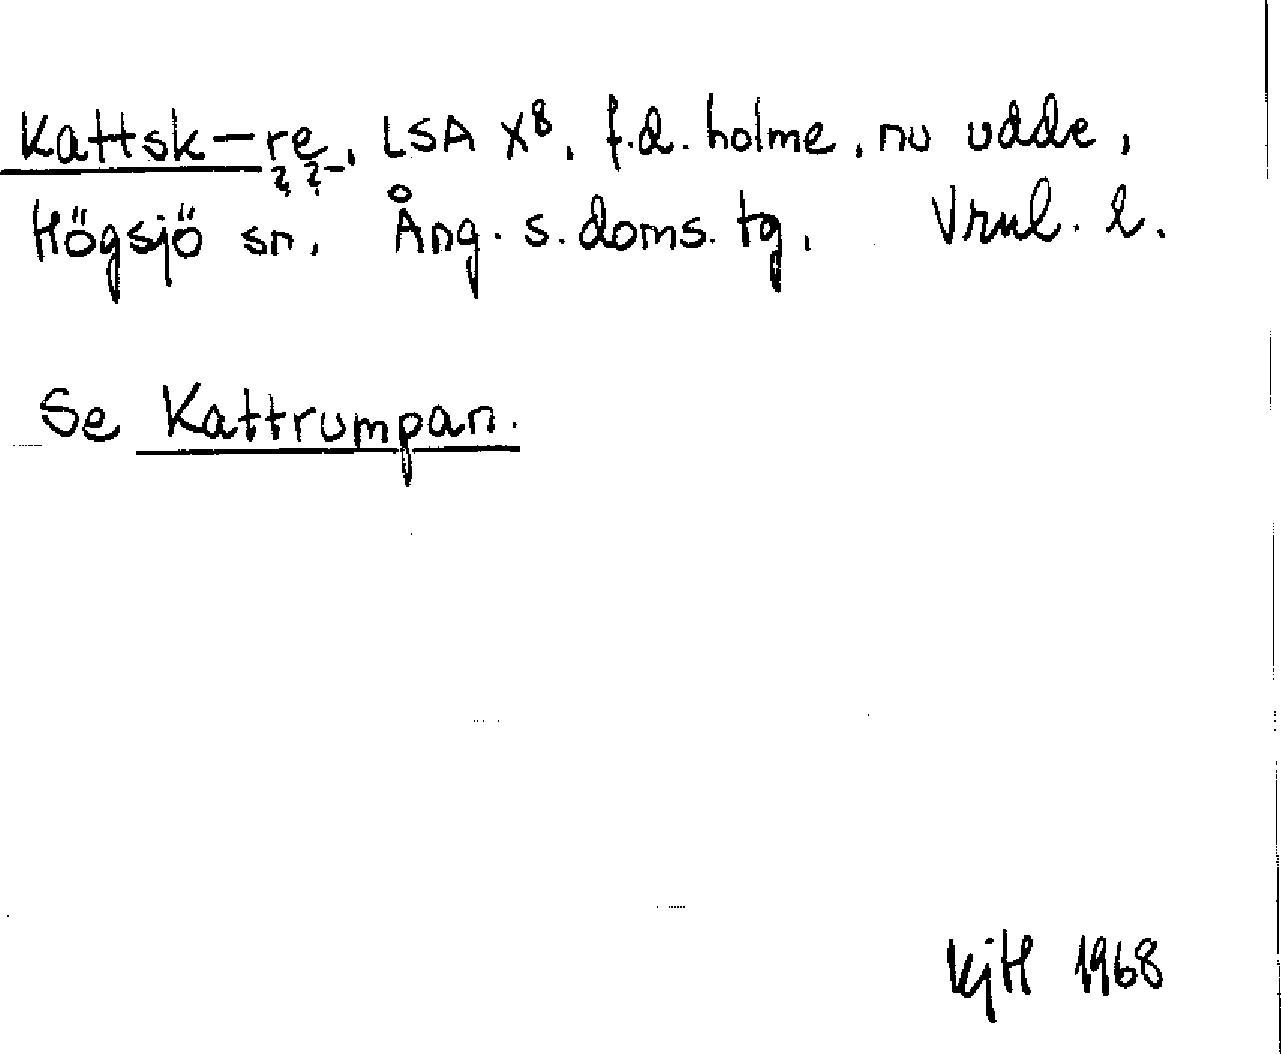 Kattsk–re, LSA X⁸, f.d. holme, nu udde,
? ?–
Högsjö sn, Ång. s. doms. tg. Vrnl. l.
Se Kattrumpan.
KjH 1968